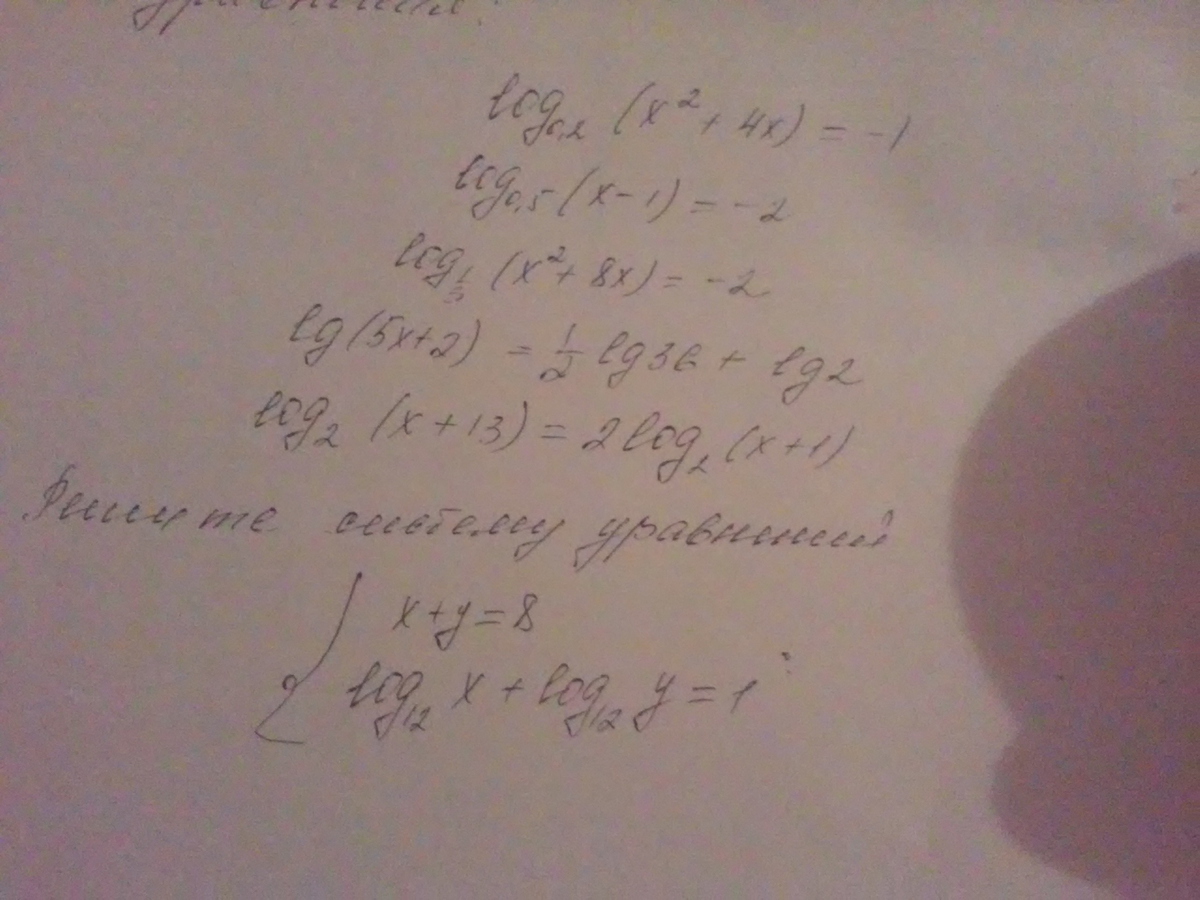 уравнения:
log₀,₂ (x² + 4x) = -1
log₀,₅ (x - 1) = -2
log_{1/3} (x² + 8x) = -2
lg(5x+2) = 1/2 lg36 + lg2
log₂ (x + 13) = 2log₂ (x+1)
Решите систему уравнений
{ x+y=8
log₁₂ x + log₁₂ y = 1